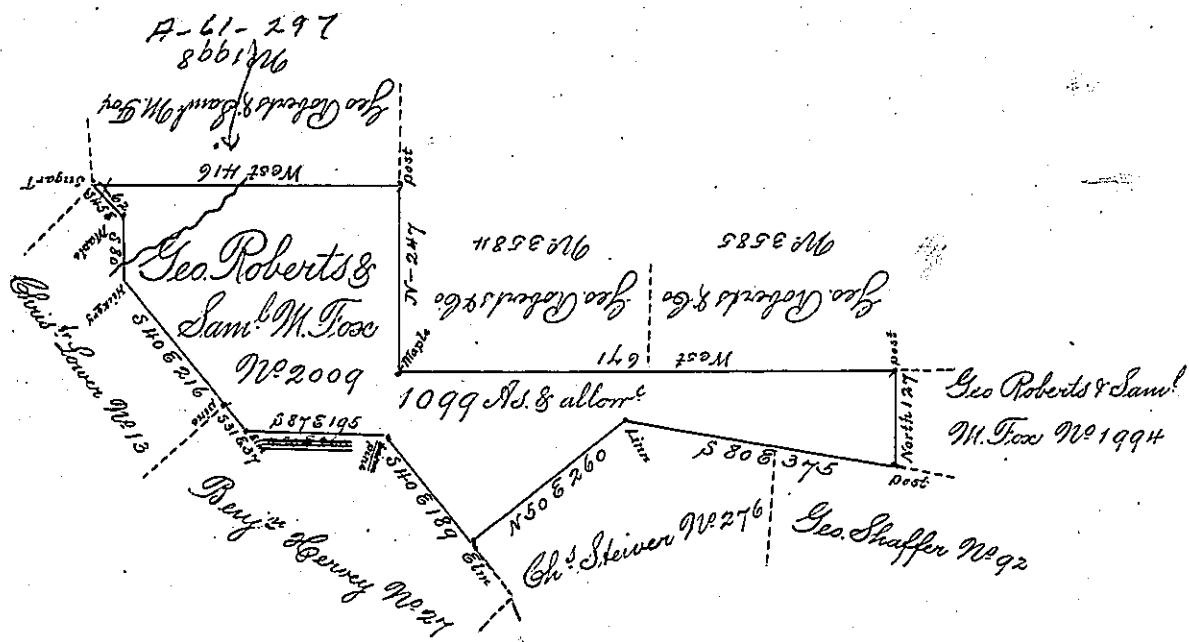 A-61-297
No 1998
Geo Roberts & Saml M. Fox
Sugar T
West 416
post
S 54 E
29
Maple
S 80
Hickory
Geo. Roberts &
Saml M. Fox
No 2000
N-247
No 3584
Geo. Roberts & Co
No 3585
Geo. Roberts & Co
Maple
671 West
post
North 127
post
Geo Roberts & Saml
M. Fox No 1994
1099 As. & allowce
Chrisr Lower No 13
S 40 E 216
pine
S 31 E 37
S 87 E 195
pine
S 40 E 189
Elm
N 50 E 260
Linn
S 80 E 375
Benjn Hervey No 27
Chs. Steiver No 276
Geo. Shaffer No 92